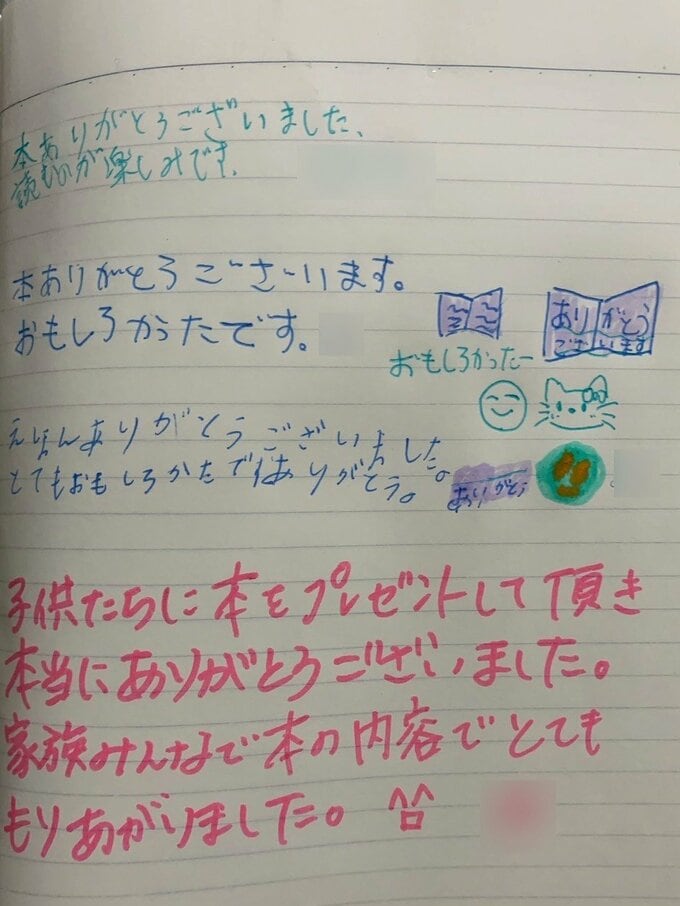 本ありがとうございました、
読むのが楽しみです.
本ありがとうございます。
おもしろかったです。
ありがとう
ございます
おもしろかったー
えほんありがとうございました。
とてもおもしろかたですありがとう。
ありがとう
子供たちに本をプレゼントして頂き
本当にありがとうございました。
家族みんなで本の内容でとても
もりあがりました。^口^